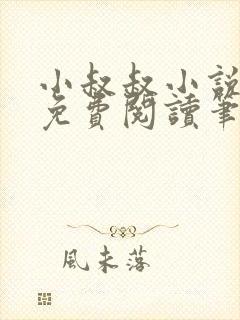 小叔叔小說
免費閱讀筆
風未落